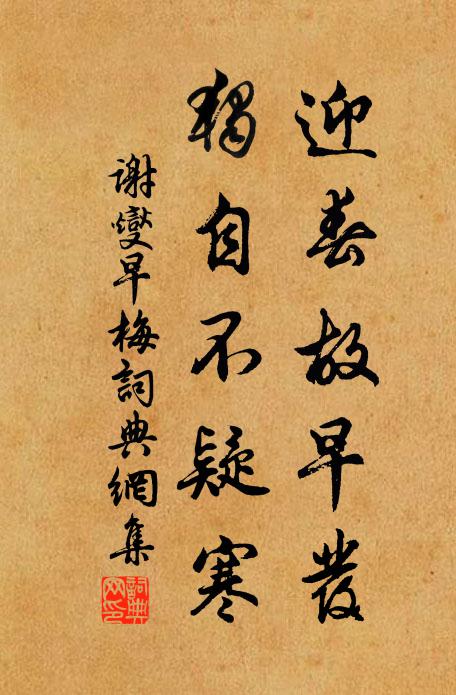 迎春故早發
獨自不疑寒
謝燮早梅詞典網集
詞典網印